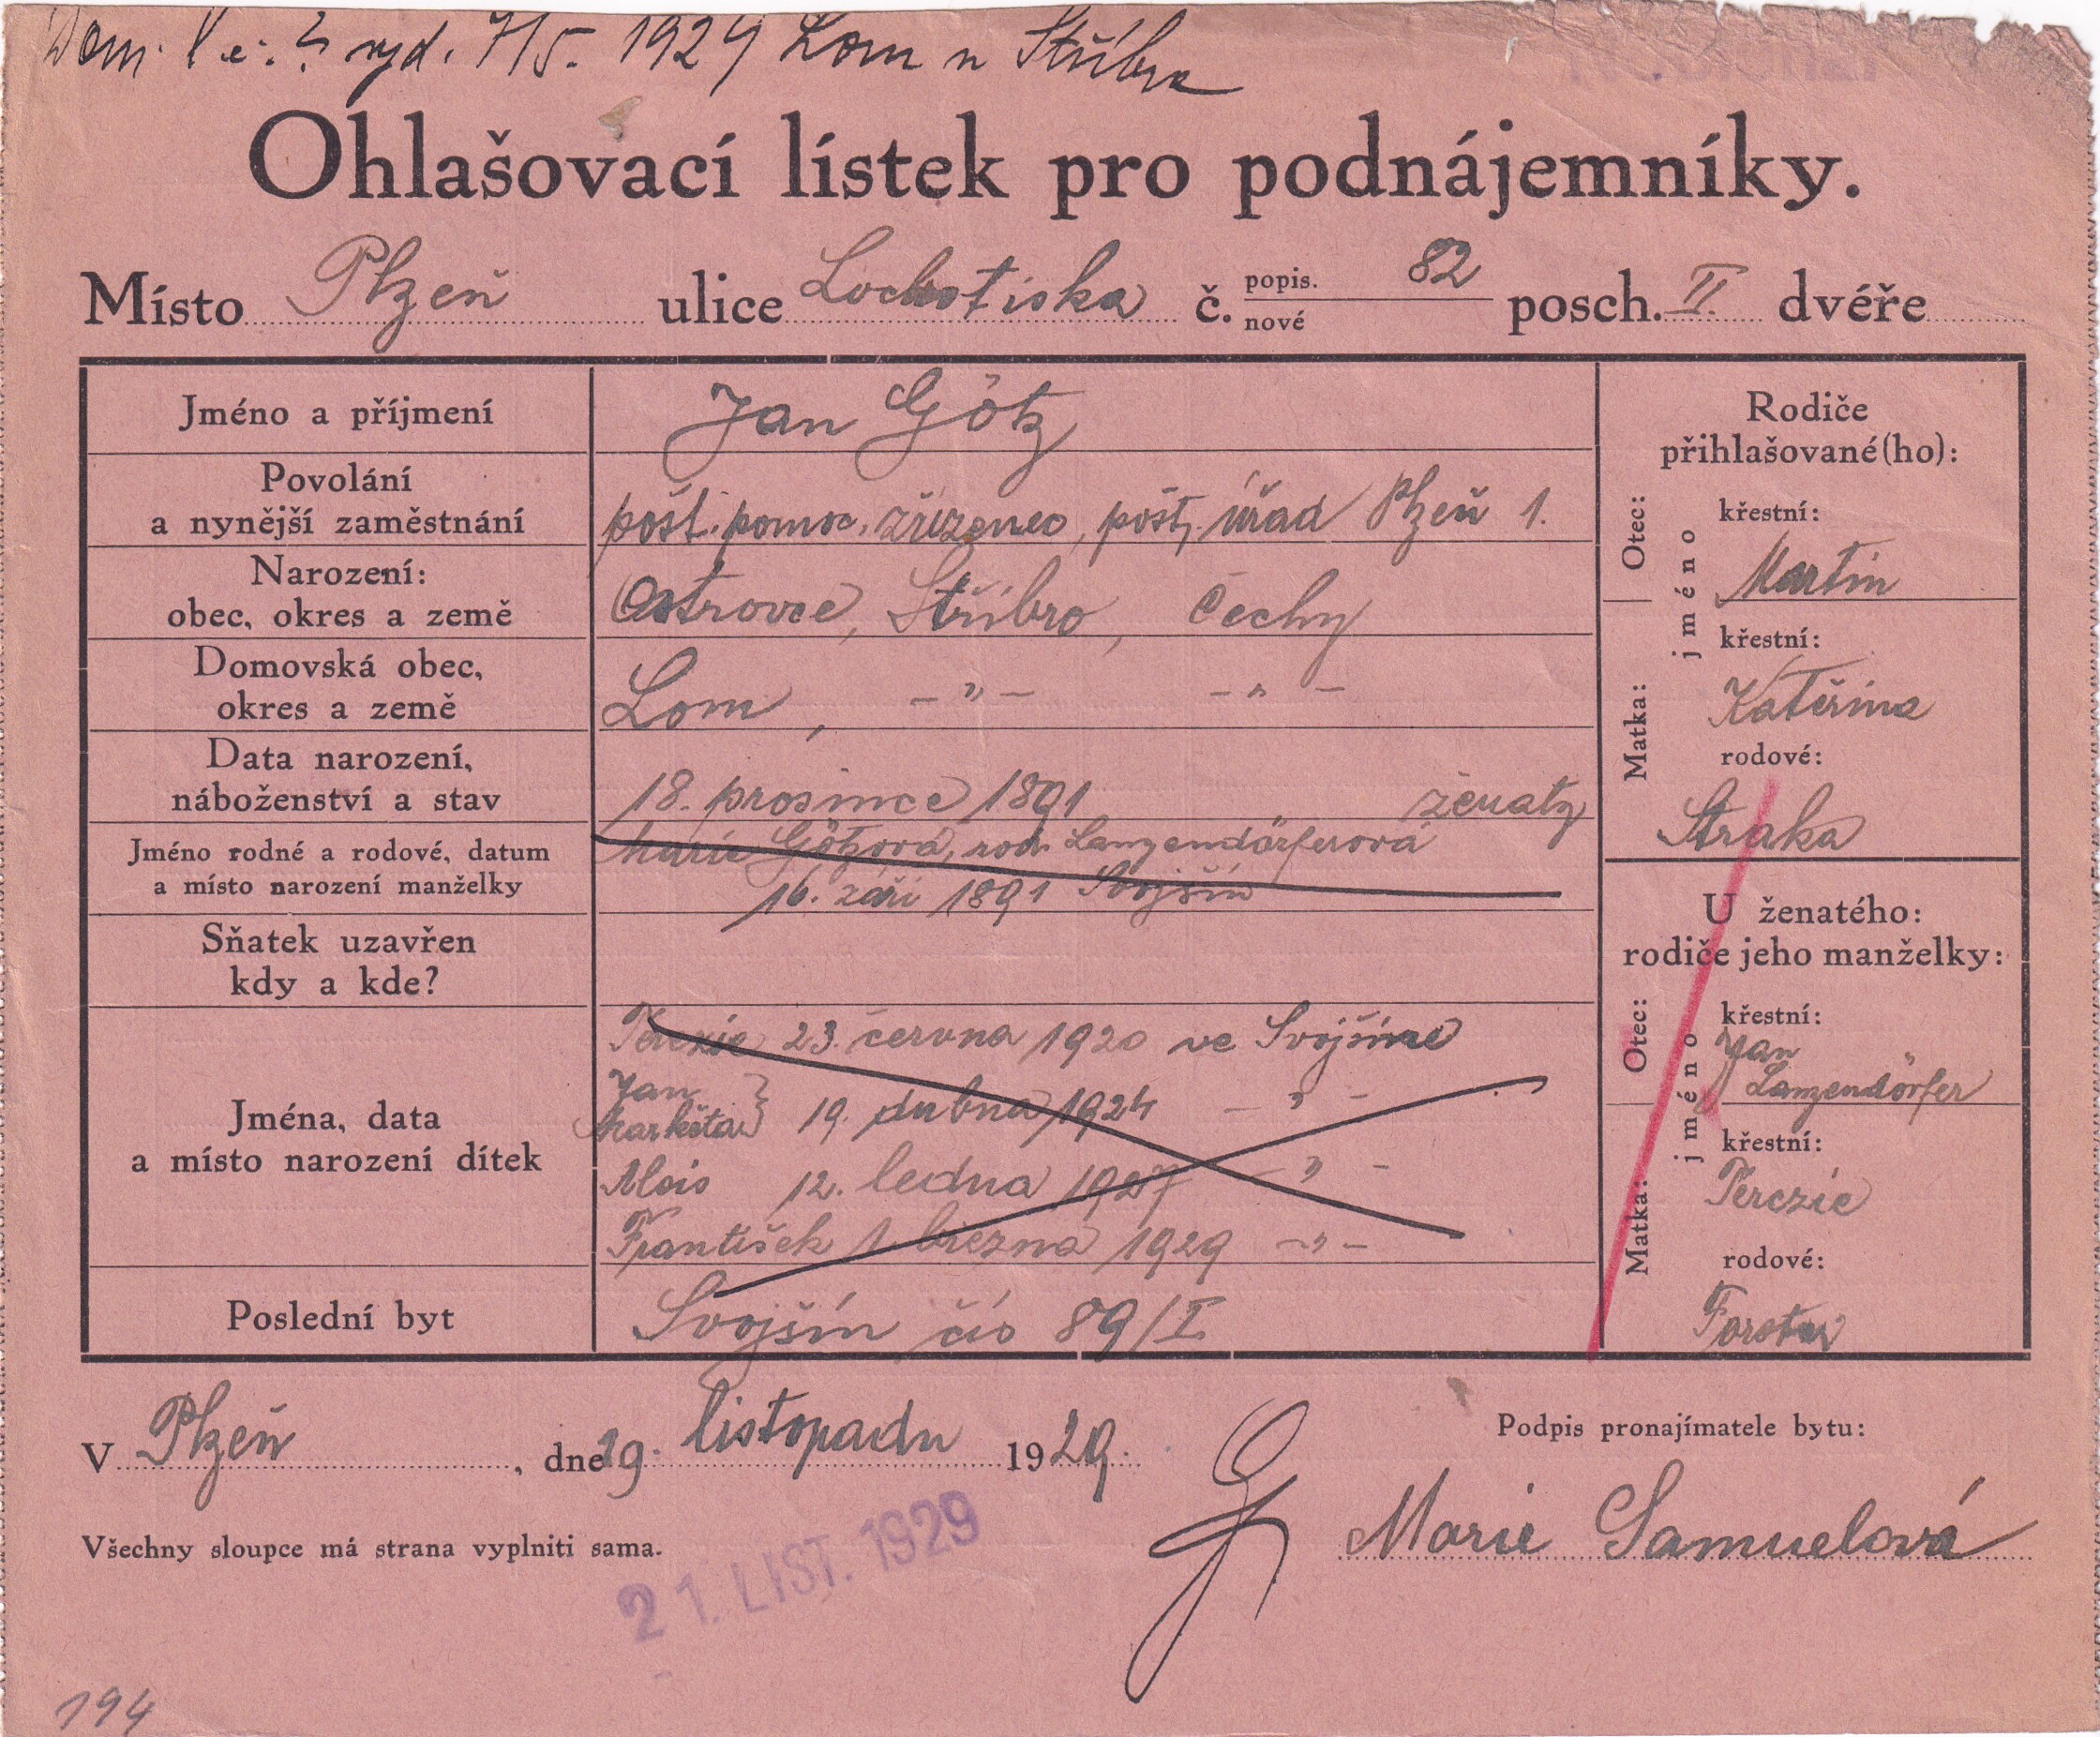 Dom. l. č. 2 vyd. 7/5. 1924 Lom u Stříbra
Ohlašovací lístek pro podnájemníky.
Místo Plzeň ulice Lochotiska č. popis. nové 82 posch. II. dvéře
Jméno a příjmení
Jan Götz
Povolání
a nynější zaměstnání
pošt. pomoc. zřízenec, pošt. úřad Plzeň 1.
Narození:
obec, okres a země
Ostrovce, Stříbro, Čechy
Domovská obec,
okres a země
Lom, –"– –"–
Data narození,
náboženství a stav
18. prosince 1891 ženatý
Jméno rodné a rodové, datum
a místo narození manželky
Marie Götzová, rod. Langendörferová
16. září 1891 Svojšín
Sňatek uzavřen
kdy a kde?
Jména, data
a místo narození dítek
Terezie 23. června 1920 ve Svojšíně
Jan
Markéta } 19. dubna 1924 –"–
Alois 12. ledna 1927 –"–
František 1 března 1929 –"–
Poslední byt
Svojšín čís 89/I.
Rodiče
přihlašované(ho):
Otec:
jméno
křestní:
Martin
Matka:
křestní:
Kateřina
rodové:
Straka
U ženatého:
rodiče jeho manželky:
Otec:
jméno
křestní:
Jan
Langendörfer
Matka:
křestní:
Terezie
rodové:
Forster
V Plzeň, dne 19. listopadu 1929.
Podpis pronajímatele bytu:
Marie Samuelová
Všechny sloupce má strana vyplniti sama.
21. LIST. 1929
194